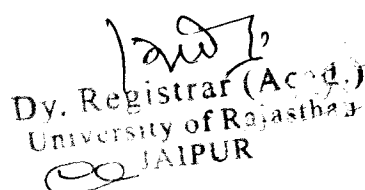 Dy. Registrar (Acad.)
University of Rajasthan
JAIPUR